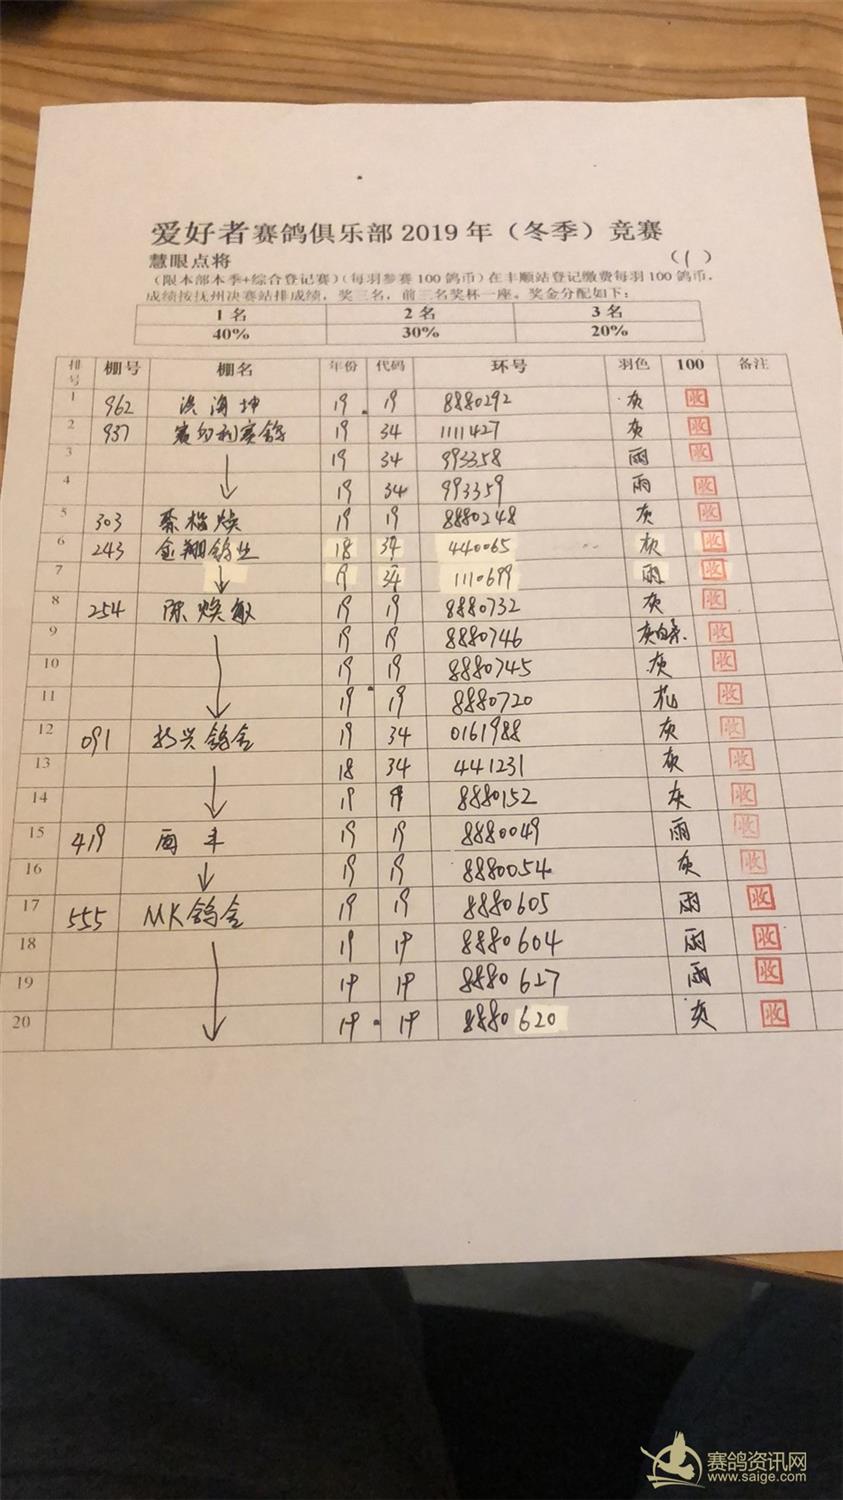 爱好者赛鸽俱乐部 2019 年（冬季）竞赛
慧眼点将 （1）
（限本部本季+综合登记赛）（每羽参赛 100 鸽币）在丰顺站登记缴费每羽 100 鸽币，
成绩按抚州决赛站排成绩，奖三名，前三名奖杯一座。奖金分配如下：
1 名 2 名 3 名
40% 30% 20%
排号 棚号 棚名 年份 代码 环号 羽色 100 备注
1 962 洪海坤 19 19 8880292 灰 收
2 937 赛鸽 19 34 1111427 灰 收
3 ↓ 19 34 993358 雨 收
4 19 34 993359 雨 收
5 303 蔡 焕 19 19 8880248 灰 收
6 243 金翔鸽业 18 34 440065 灰 收
7 ↓ 19 34 1110699 雨 收
8 254 陈焕敏 19 19 8880732 灰 收
9 19 19 8880746 灰白条 收
10 ↓ 19 19 8880745 灰 收
11 19 19 8880720 花 收
12 091 兴鸽舍 19 34 0161988 灰 收
13 ↓ 18 34 441231 灰 收
14 19 19 8880152 灰 收
15 419 丰 19 19 8880049 雨 收
16 ↓ 19 19 8880054 灰 收
17 555 MK鸽舍 19 19 8880605 雨 收
18 19 19 8880604 雨 收
19 ↓ 19 19 8880627 雨 收
20 19 19 8880620 灰 收
赛鸽资讯网
www.saige.com